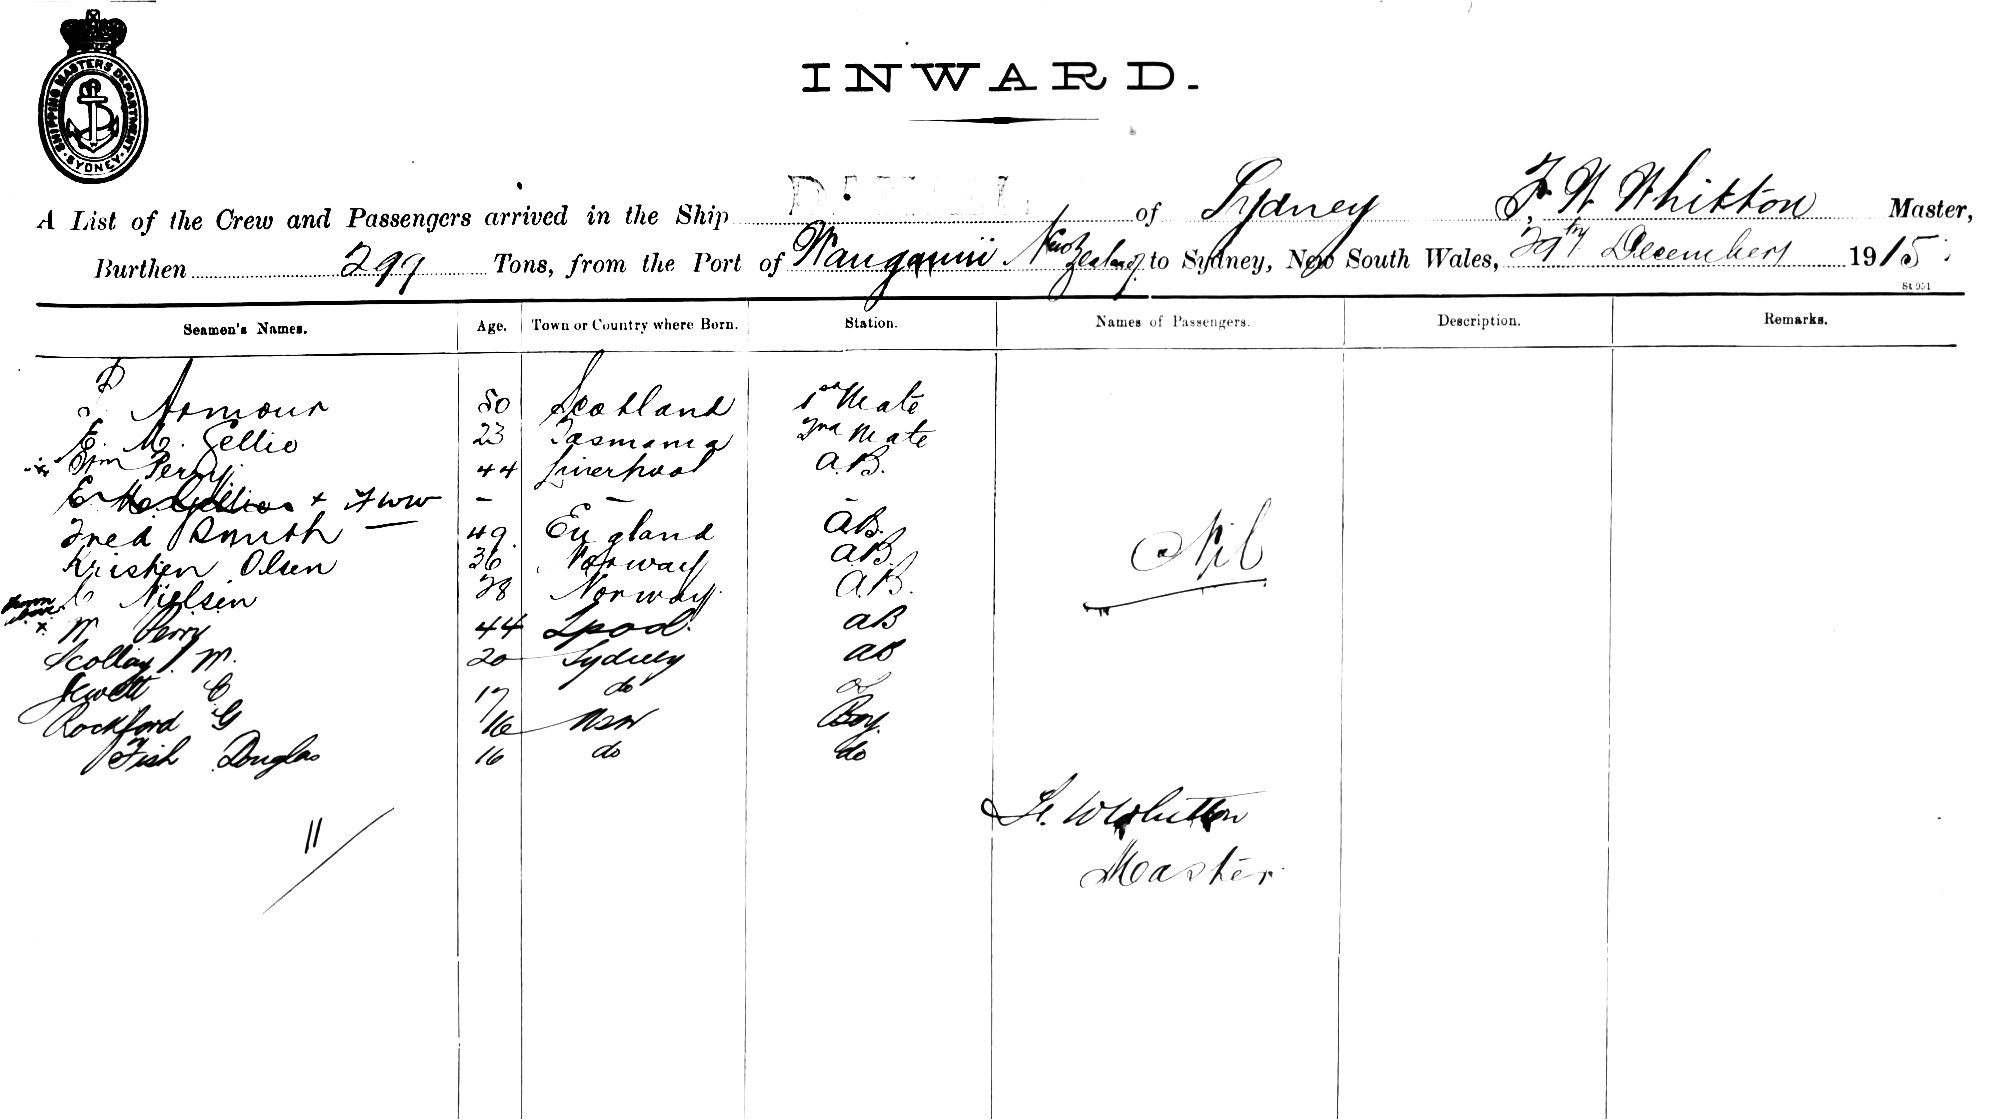 SHIPPING MASTERS DEPARTMENT. SYDNEY
INWARD.
A List of the Crew and Passengers arrived in the Ship of Sydney F. W. Whitton Master,
Burthen 299 Tons, from the Port of Wanganui New Zealand to Sydney, New South Wales, 29th December 1915
St 951
Seamen's Names. Age. Town or Country where Born. Station. Names of Passengers. Description. Remarks.
Armour 50 Scotland 1st Mate
E. M. Gellie 23 Tasmania 2nd Mate
Wm Perry 44 Liverpool A.B.
E. + FWW - - -
Fred Smith 49 England AB.
Kristen Olsen 36 Norway AB.
C Nielsen 28 Norway A.B.
x W Perry 44 Lpool. AB
Scollay J. M. 20 Sydney AB
Jewett C 17 do
Rockford G 16 NSW Boy.
Fish Douglas 16 do do
Nil
11
F. W Whitton
Master